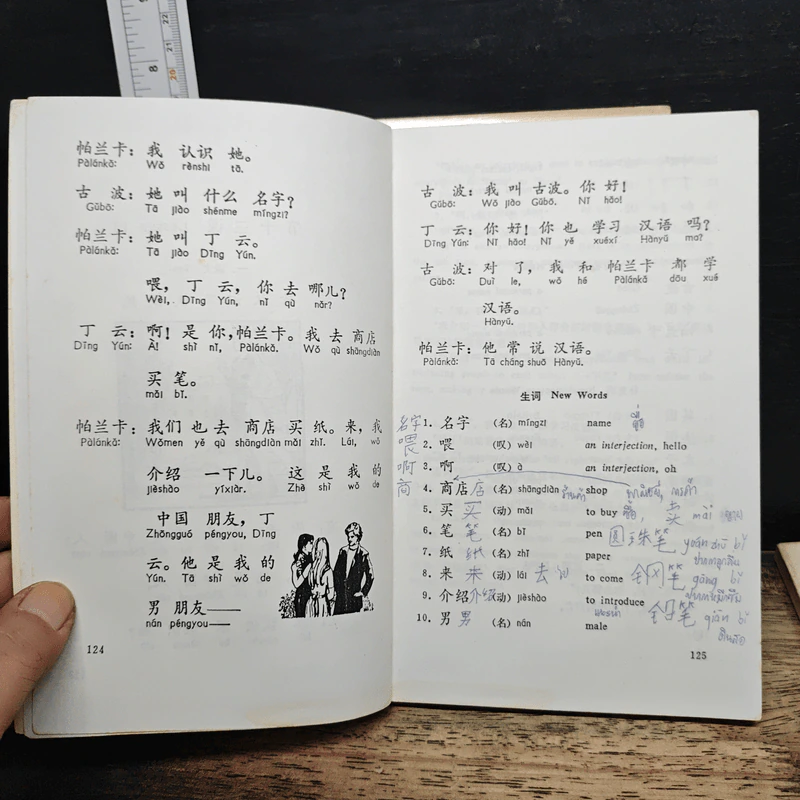 帕兰卡：我 认识 她。
Pàlánkǎ: Wǒ rènshi tā.
古 波：她 叫 什么 名字？
Gǔbō: Tā jiào shénme míngzi?
帕兰卡：她 叫 丁 云。
Pàlánkǎ: Tā jiào Dīng Yún.
喂，丁 云，你 去 哪儿？
Wèi, Dīng Yún, nǐ qù nǎr?
丁 云：啊！是 你，帕兰卡。我 去 商店
Dīng Yún: À! shì nǐ, Pàlánkǎ. Wǒ qù shāngdiàn
买 笔。
mǎi bǐ.
帕兰卡：我们 也 去 商店 买 纸。来，我
Pàlánkǎ: Wǒmen yě qù shāngdiàn mǎi zhǐ. Lái, wǒ
介绍 一下儿。这 是 我 的
jièshào yíxiàr. Zhè shì wǒ de
中国 朋友，丁
Zhōngguó péngyou, Dīng
云。他 是 我 的
Yún. Tā shì wǒ de
男 朋友——
nán péngyou——
124
古 波：我 叫 古波。你 好！
Gǔbō: Wǒ jiào Gǔbō. Nǐ hǎo!
丁 云：你 好！你 也 学习 汉语 吗？
Dīng Yún: Nǐ hǎo! Nǐ yě xuéxí Hànyǔ ma?
古 波：对 了，我 和 帕兰卡 都 学
Gǔbō: Duì le, wǒ hé Pàlánkǎ dōu xué
汉语。
Hànyǔ.
帕兰卡：他 常 说 汉语。
Pàlánkǎ: Tā cháng shuō Hànyǔ.
生词 New Words
名字 1. 名字 (名) míngzi name ชื่อ
喂 2. 喂 (叹) wèi an interjection, hello
啊 3. 啊 (叹) à an interjection, oh
商 4. 商店 店 (名) shāngdiàn ร้านค้า shop
5. 买 买 (动) mǎi to buy ซื้อ, 卖 mài ขาย
6. 笔 笔 (名) bǐ pen 圆珠笔 yuán zhū bǐ
7. 纸 纸 (名) zhǐ paper
8. 来 来 (动) lái 去 to come 钢笔 gāng bǐ
9. 介绍 介绍 (动) jièshào to introduce
10. 男 男 (名) nán male 铅笔 qiān bǐ
ดินสอ
125